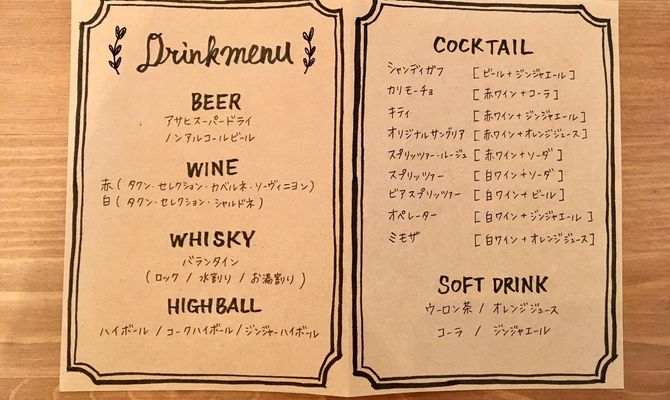 Drinkmenu
BEER
アサヒスーパードライ
ノンアルコールビール
WINE
赤(タワン・セレクション・カベルネ・ソーヴィニヨン)
白(タワン・セレクション・シャルドネ)
WHISKY
バランタイン
(ロック / 水割り / お湯割り)
HIGHBALL
ハイボール / コークハイボール / ジンジャーハイボール
COCKTAIL
シャンディガフ [ビール+ジンジャエール]
カリモーチョ [赤ワイン+コーラ]
キティ [赤ワイン+ジンジャエール]
オリジナルサングリア [赤ワイン+オレンジジュース]
スプリッツァー・ルージュ [赤ワイン+ソーダ]
スプリッツァー [白ワイン+ソーダ]
ビアスプリッツァー [白ワイン+ビール]
オペレーター [白ワイン+ジンジャエール]
ミモザ [白ワイン+オレンジジュース]
SOFT DRINK
ウーロン茶 / オレンジジュース
コーラ / ジンジャエール